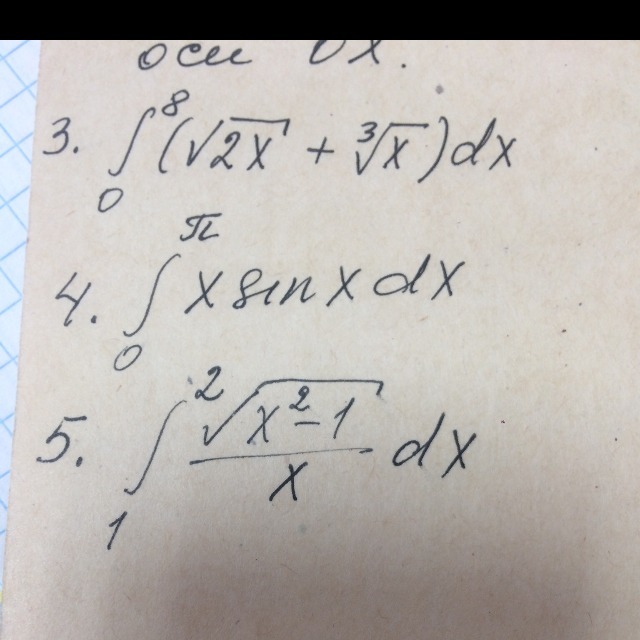 оси Ox.
3. ∫₀⁸ (√2x + ∛x) dx
4. ∫₀^π x sin x dx
5. ∫₁² √(x²-1)/x dx